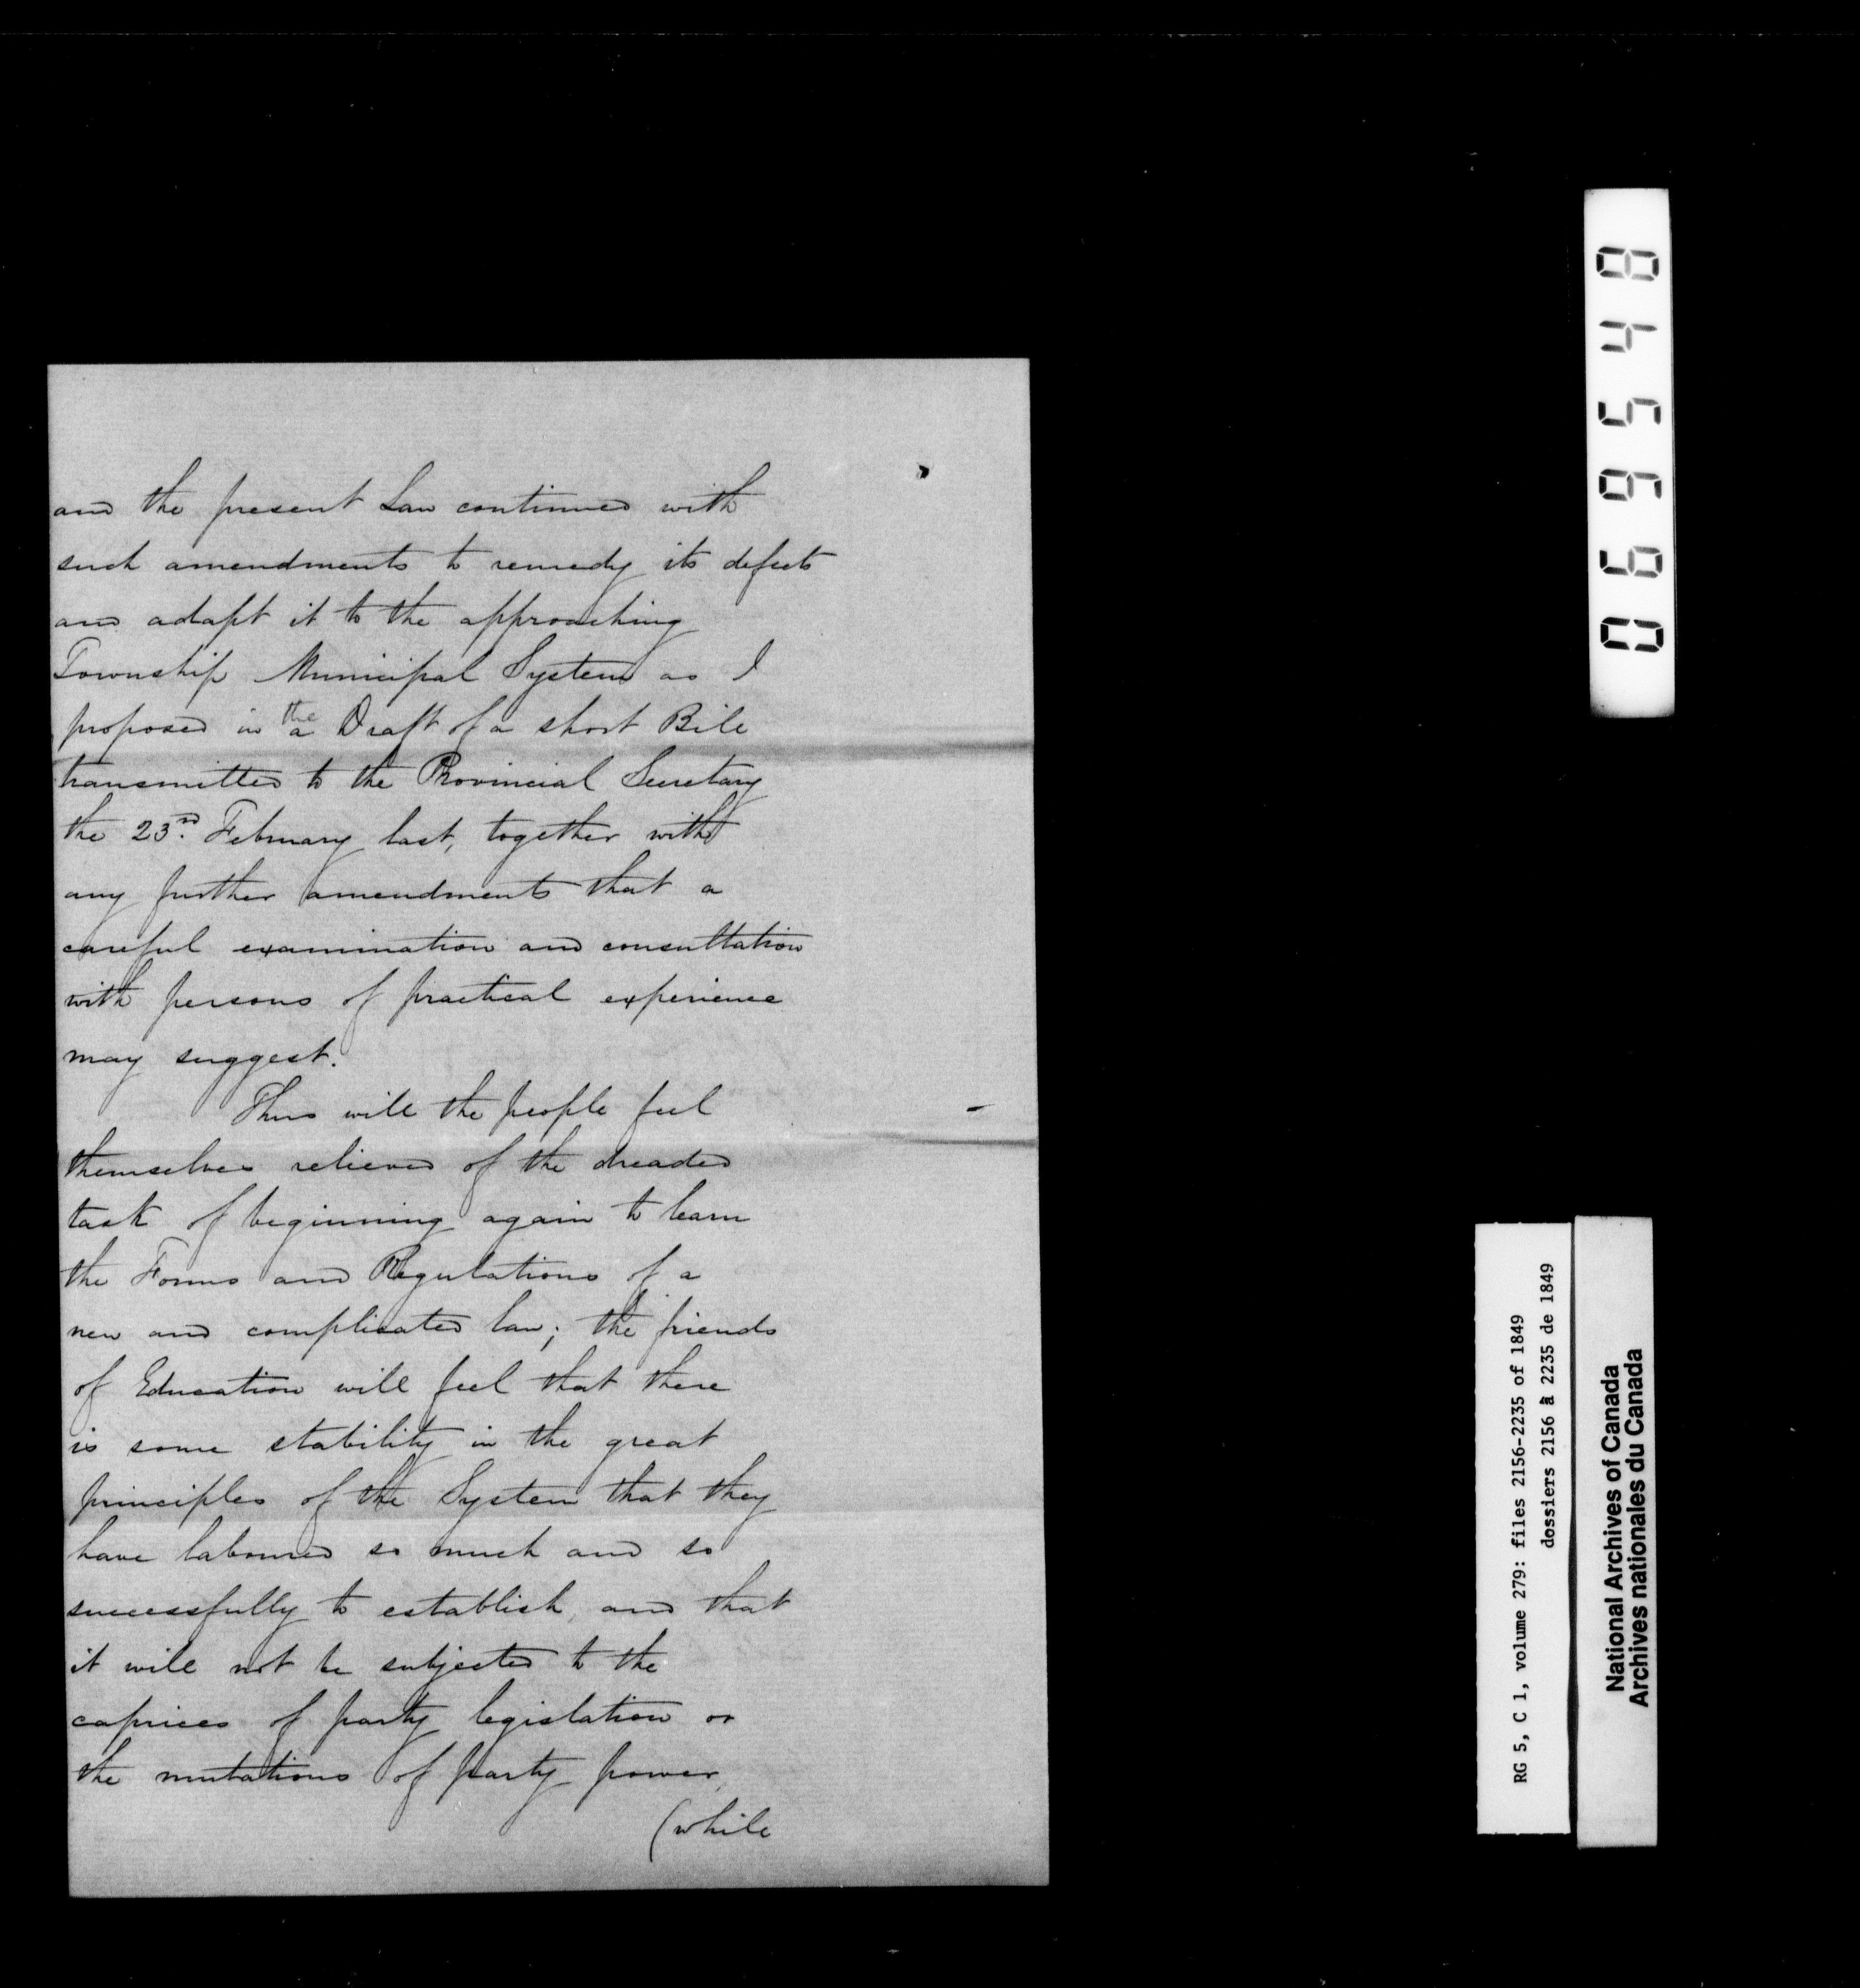 and the present Law continued with
such amendments to remedy its defects
and adapt it to the approaching
Township Municipal System as I
proposed in a the Draft of a short Bill
transmitted to the Provincial Secretary
the 23rd. February last, together with
any further amendments that a
careful examination and consultation
with persons of practical experience
may suggest.
Thus will the people feel
themselves relieved of the dreaded
task of beginning again to learn
the Forms and Regulations of a
new and complicated law; the friends
of Education will feel that there
is some stability in the great
principles of the System that they
have laboured so much and so
successfully to establish, and that
it will not be subjected to the
caprices of party legislation or
the mutations of party power,
(while
069548
RG 5, C 1, volume 279: files 2156-2235 of 1849
dossiers 2156 à 2235 de 1849
National Archives of Canada
Archives nationales du Canada